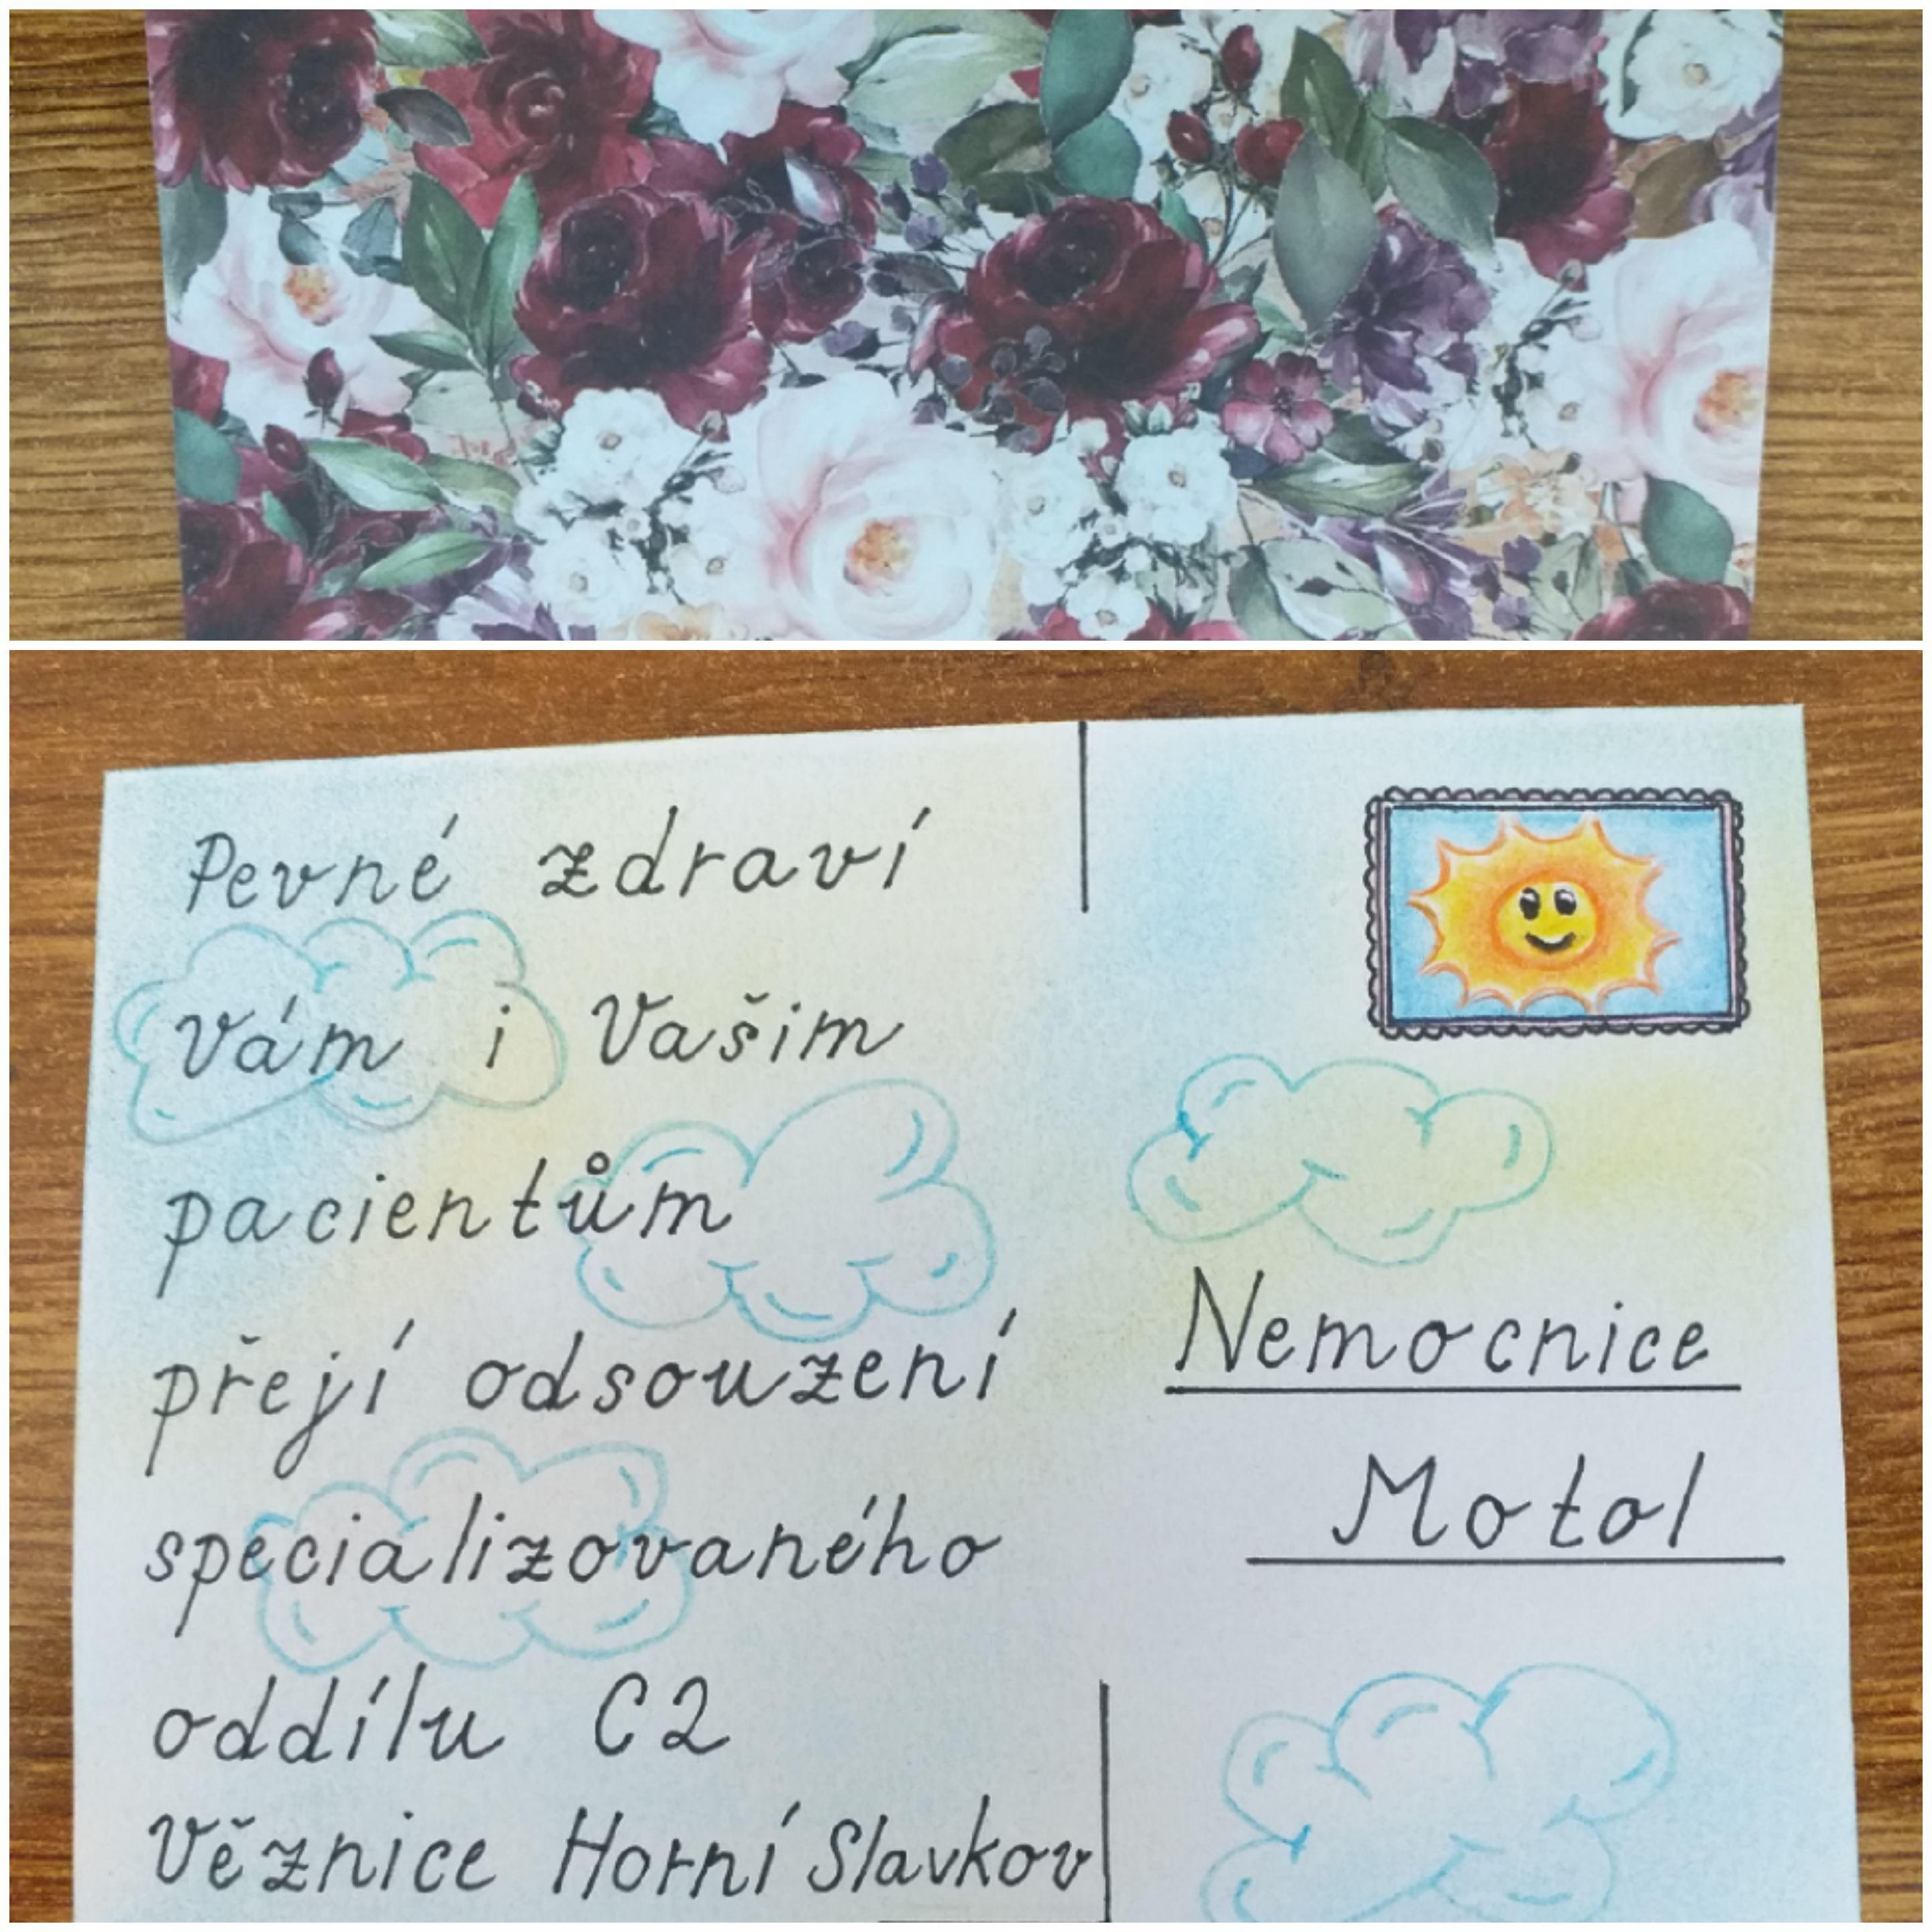 Pevné zdraví
Vám i Vašim
pacientům
přejí odsouzení
specializovaného
oddílu C2
Věznice Horní Slavkov
Nemocnice
Motol